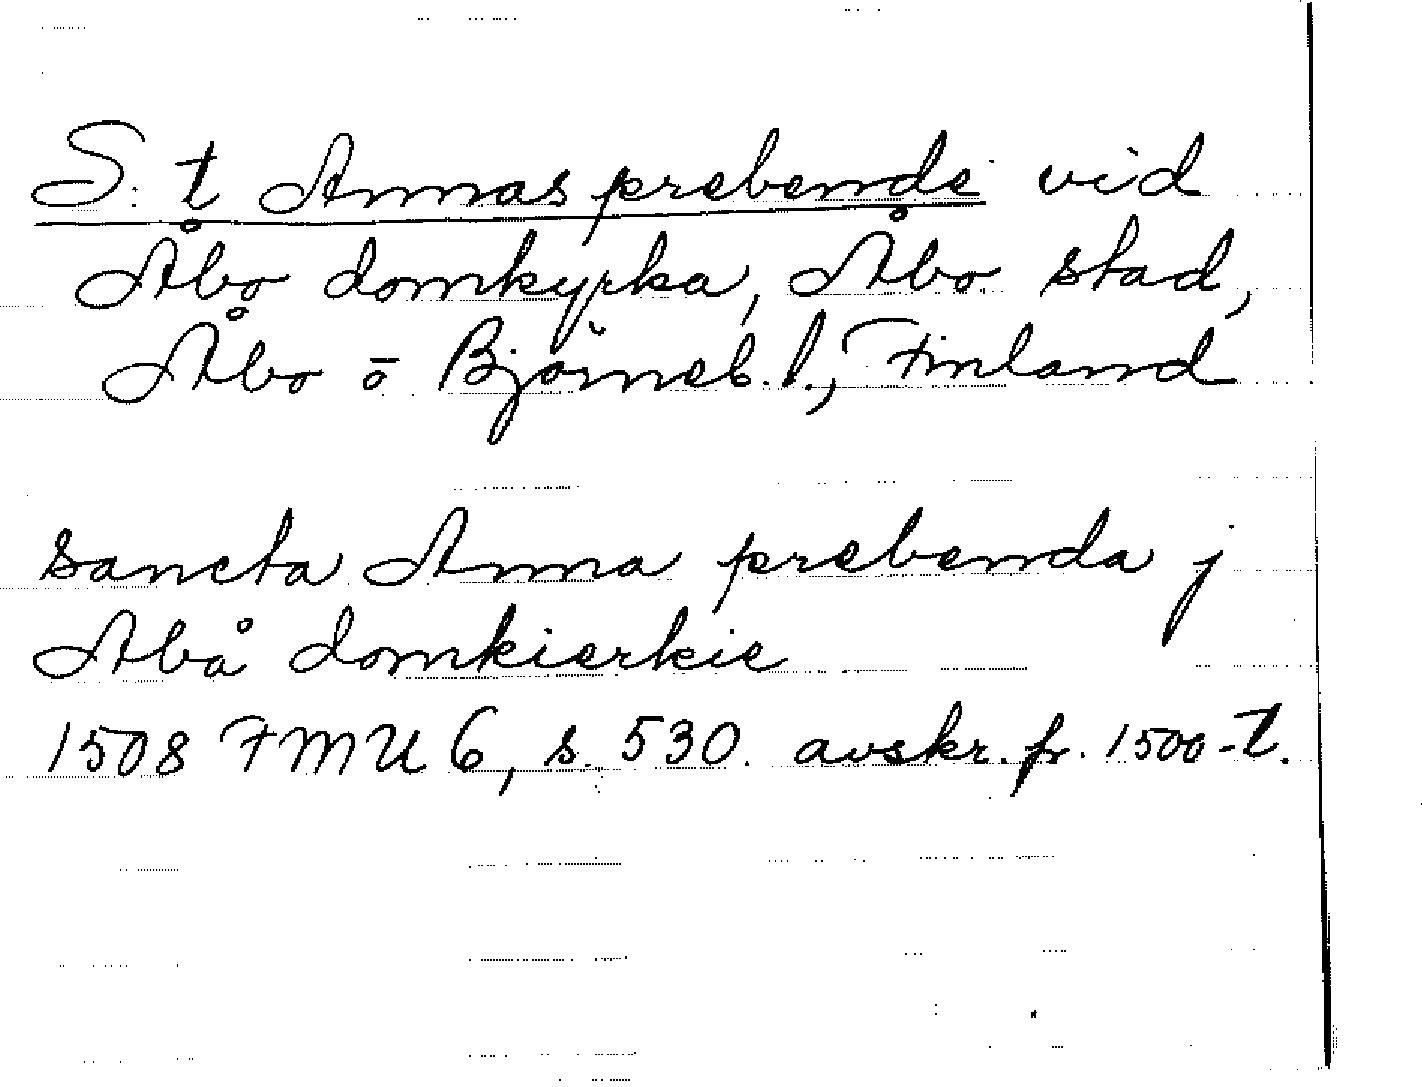 S:t Annas prebende vid
Åbo domkyrka, Åbo stad,
Åbo o Björneb. l., Finland
sancta Anna prebenda j
Abå domkierkie
1508 FMU 6, s. 530. avskr. fr. 1500-t.